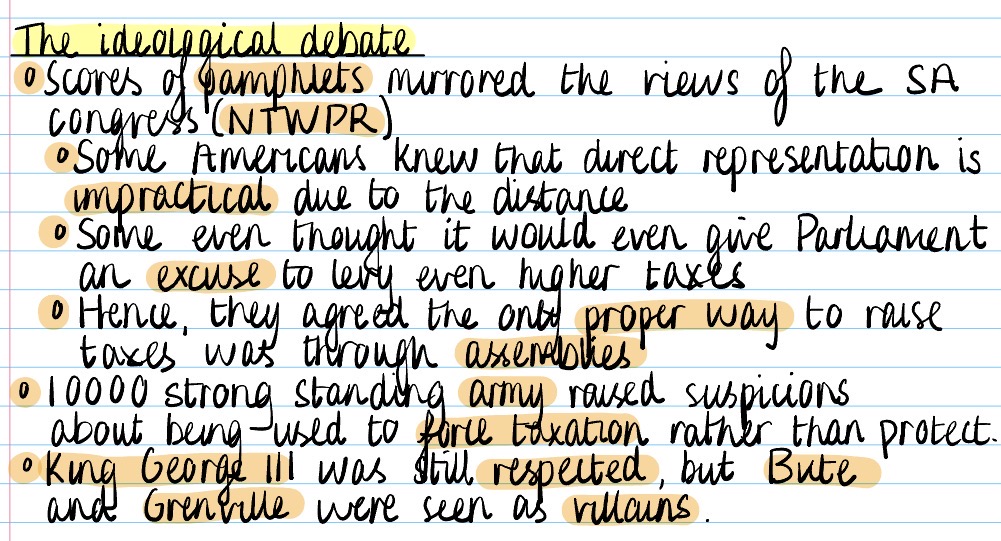 The ideological debate
o Scores of pamphlets mirrored the views of the SA
congress (NTWPR)
o Some Americans knew that direct representation is
impractical due to the distance
o Some even thought it would even give Parliament
an excuse to levy even higher taxes
o Hence, they agreed the only proper way to raise
taxes was through assemblies
o 10000 strong standing army raised suspicions
about being used to force taxation rather than protect.
o King George III was still respected, but Bute
and Grenville were seen as villains.